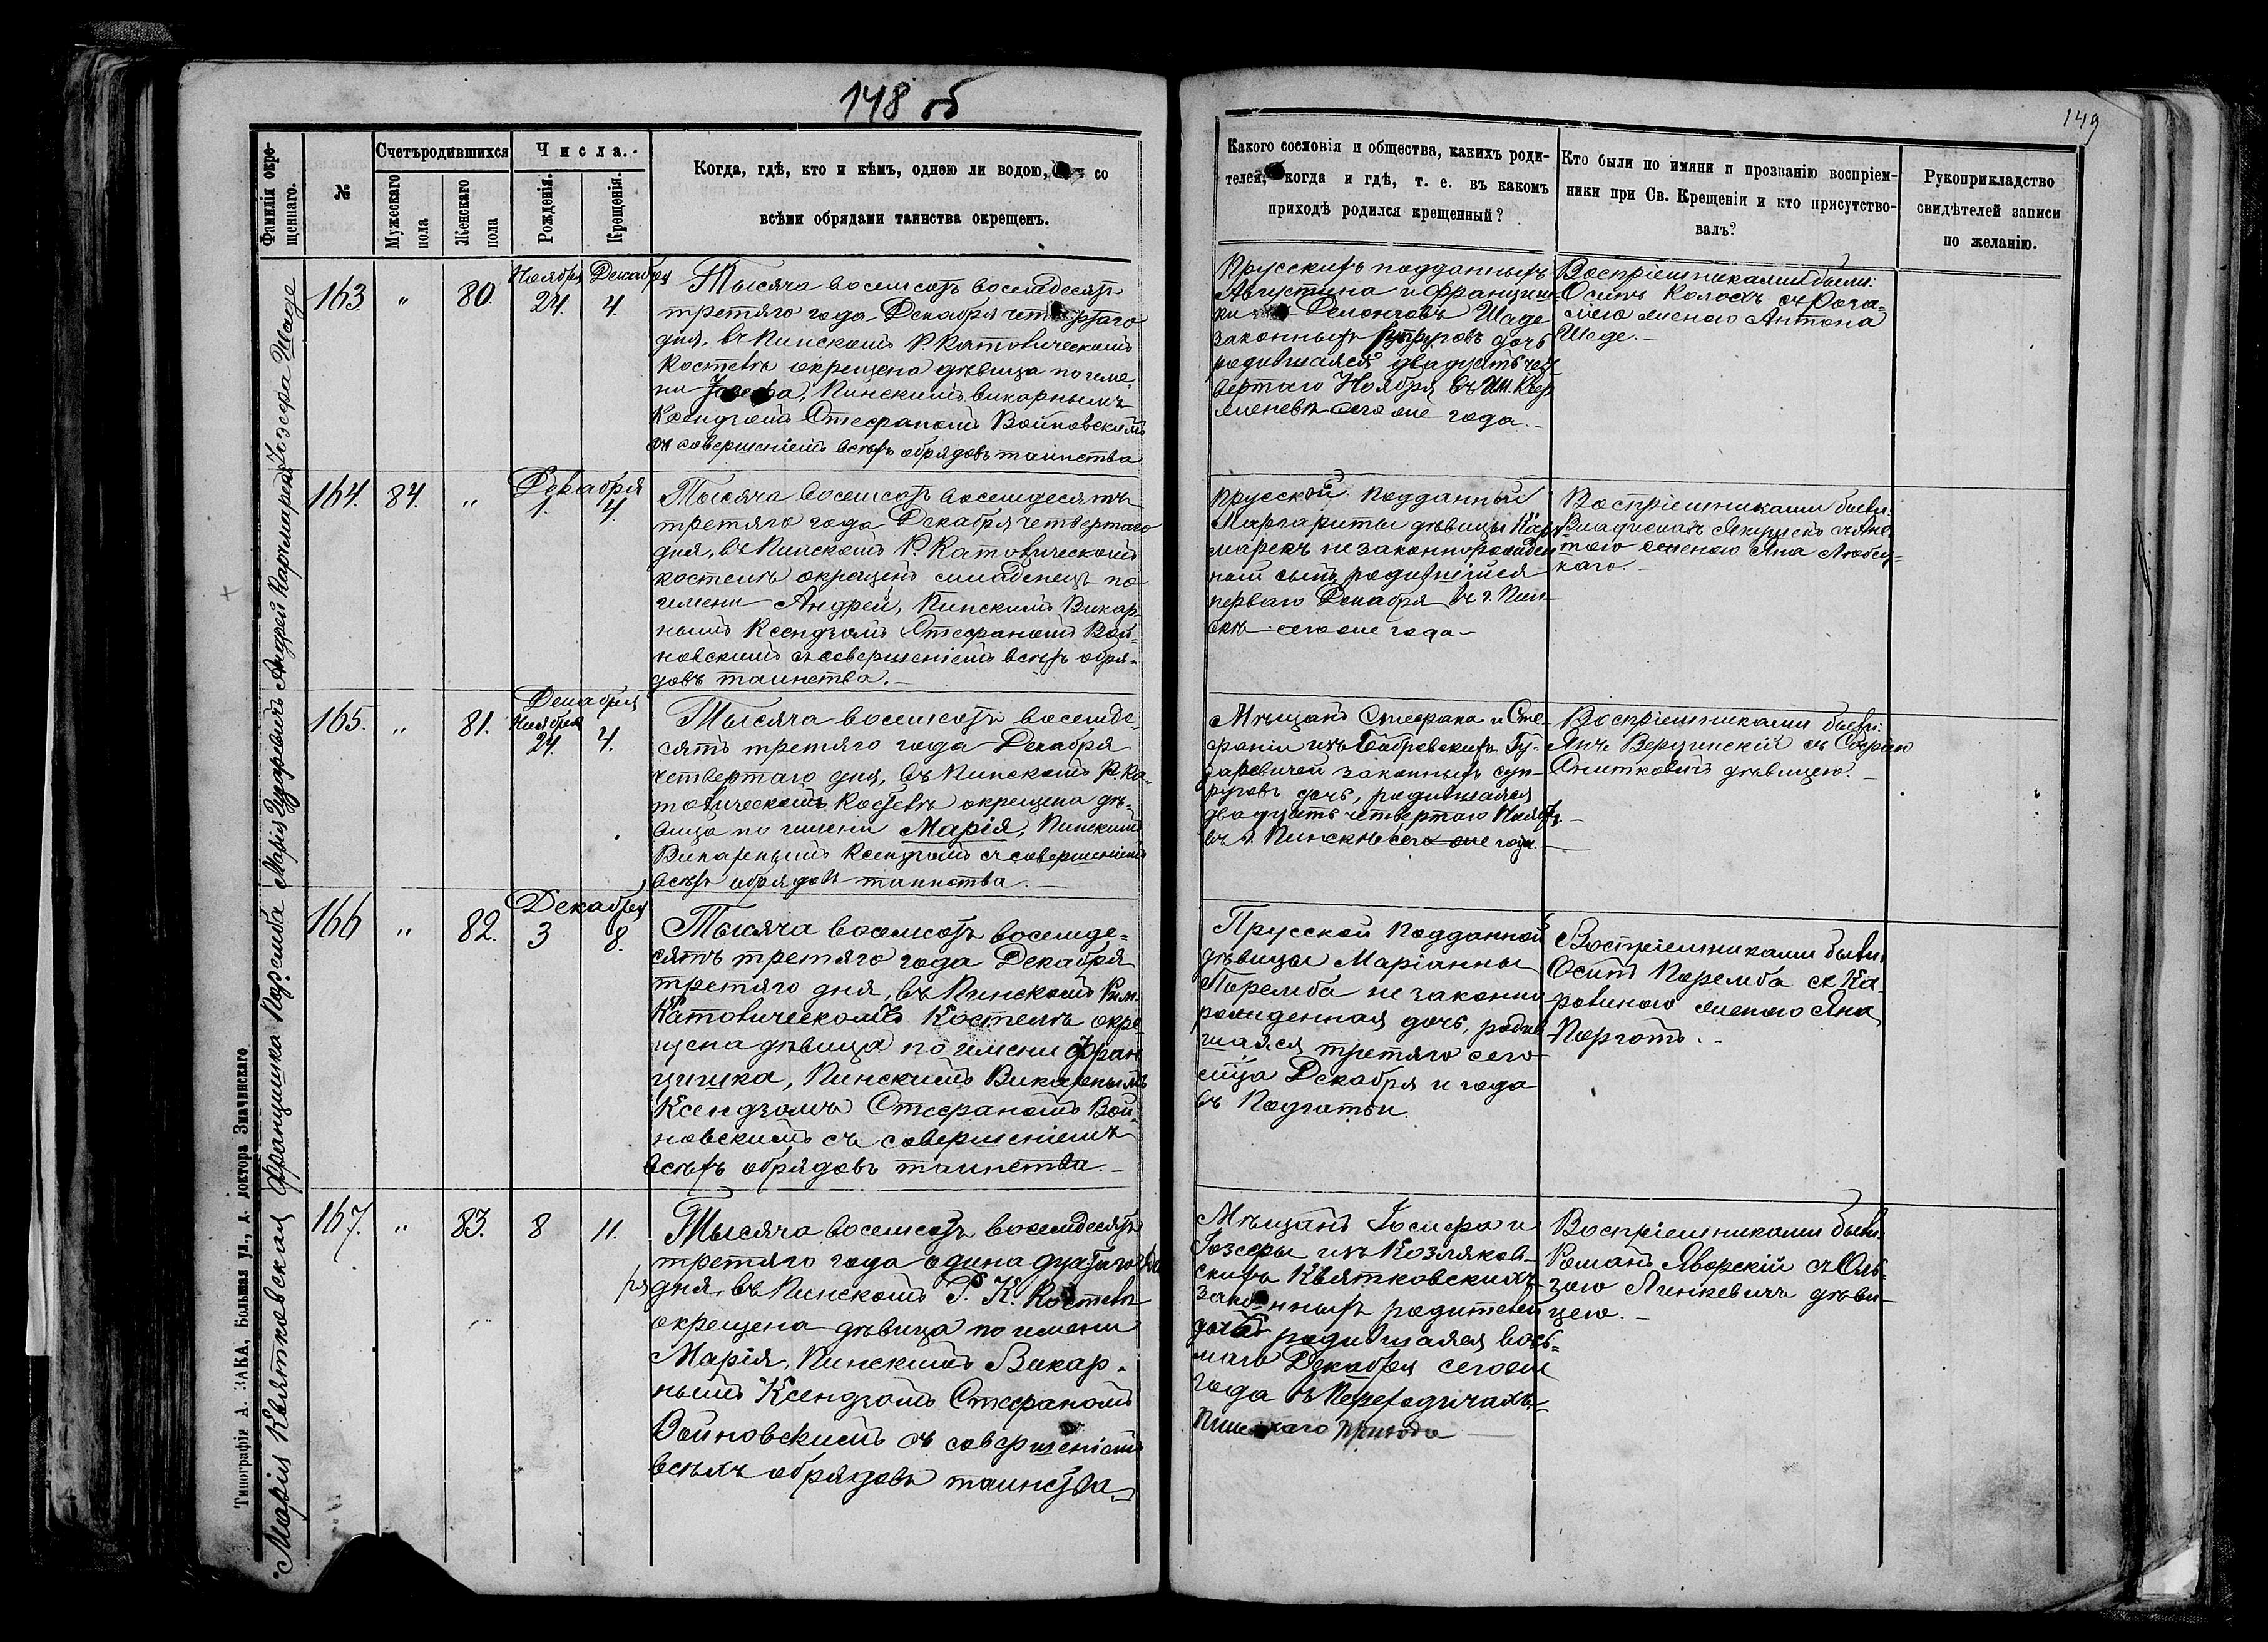 148 об
149
Фамилія окре-
щеннаго.
№
Счетъ родившихся
Мужескаго
пола
Женскаго
пола
Числа.
Рожденія.
Крещенія.
Когда, гдѣ, кто и кѣмъ, одною ли водою, со
всѣми обрядами таинства окрещенъ.
Какого сословія и общества, какихъ роди-
телей, когда и гдѣ, т. е. въ какомъ
приходѣ родился крещенный?
Кто были по имяни и прозванію воспріем-
ники при Св. Крещеніи и кто присутство-
валъ?
Рукоприкладство
свидѣтелей записи
по желанію.
Іозефа Шаде
163.
"
80.
Ноября
24.
Декабря
4.
Тысяча восемсотъ восемдесятъ
третяго года Декабря четвертаго
дня, въ Пинскомъ Р. Католическомъ
Костелѣ окрещена дѣвица по име-
ни Іозефа, Пинскимъ викарнымъ
Ксендзомъ Стефаномъ Войновскимъ
съ совершеніемъ всѣхъ обрядовъ таинства
Прусскихъ подданныхъ
Августина и Францишки
Шаде
законныхъ супруговъ дочь
родившаяся двадцать чет-
вертаго Ноября въ им.
сего же года.
Воспріемниками были:
Осипъ съ
женою Антона
Шаде.
Андрей Карчмарекъ
164.
84.
"
Декабря
1.
4.
Тысяча восемсотъ восемдесятъ
третяго года Декабря четвертаго
дня, въ Пинскомъ Р. Католическомъ
костелѣ окрещенъ младенецъ по
имени Андрей, Пинскимъ Викар-
нымъ Ксендзомъ Стефаномъ Вой-
новскимъ съ совершеніемъ всѣхъ обря-
довъ таинства.
Прусской подданной
Маргариты дѣвицы Карч-
марекъ незаконнорожден-
ный сынъ, родившійся
перваго Декабря въ г. Пин-
скѣ сего же года
Воспріемниками были:
женою Яна
Марія Гузаревичъ
165.
"
81.
Декабря
Ноября
24.
4.
Тысяча восемсотъ восемде-
сятъ третяго года Декабря
четвертаго дня, въ Пинскомъ Р. Ка-
толическомъ Костелѣ окрещена дѣ-
вица по имени Марія, Пинскимъ
Викарнымъ Ксендзомъ съ совершеніемъ
всѣхъ обрядовъ таинства.
Мѣщанъ Стефана и Сте-
фаніи изъ Бобровскихъ Гу-
заревичей законныхъ суп-
руговъ дочь, родившаяся
двадцать четвертаго Ноября
въ г. Пинскѣ сего же года.
Воспріемниками были:
Янъ Вержинскій съ Софіею
Снитковичъ дѣвицею.
Францишка Поремба
166
"
82.
Декабря
3
8.
Тысяча восемсотъ восемде-
сятъ третяго года Декабря
третяго дня, въ Пинскомъ Рим.
Католическомъ Костелѣ окре-
щена дѣвица по имени Фран-
цишка, Пинскимъ Викарнымъ
Ксендзомъ Стефаномъ Вой-
новскимъ съ совершеніемъ
всѣхъ обрядовъ таинства.
Прусской подданной
дѣвицы Маріанны
Поремба незаконно
рожденная дочь, родив-
шаяся третяго сего
м-ца Декабря и года
въ Подгатьи.
Воспріемниками были:
Осипъ Поремба съ Ка-
ролиною женою Яна
Марія Квятковская
167.
"
83.
8
11.
Тысяча восемсотъ восемдесятъ
третяго года одинадцатаго Дека
бря дня, въ Пинскомъ Р. К. Костелѣ
окрещена дѣвица по имени
Марія, Пинскимъ Викар-
нымъ Ксендзомъ Стефаномъ
Войновскимъ съ совершеніемъ
всѣхъ обрядовъ таинства
Мѣщанъ Іосифа и
Іозефы изъ Козляков-
скихъ Квятковскихъ
законныхъ родителей
дочь родившаяся вось-
маго Декабря сего же
года въ
Пинскаго прихода
Воспріемниками были:
Романъ Яворскій съ Ель-
зою Линкевичъ дѣви-
цею.
Типографія А. ЗАКА, Большая ул., д. доктора Значинскаго